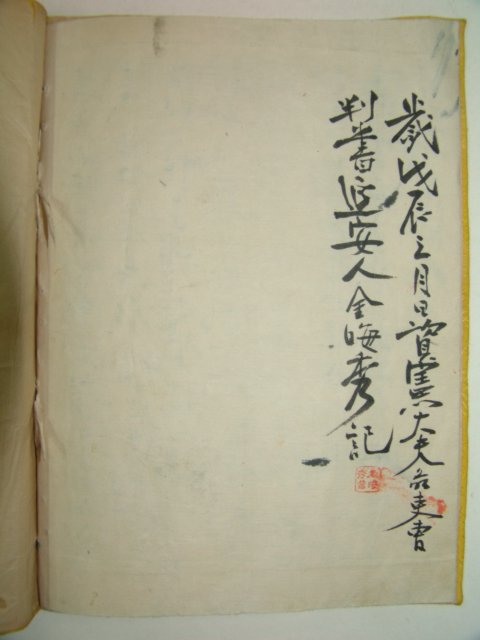 歲戊辰三月日資憲大夫前吏曹
判書延安人金晦秀記